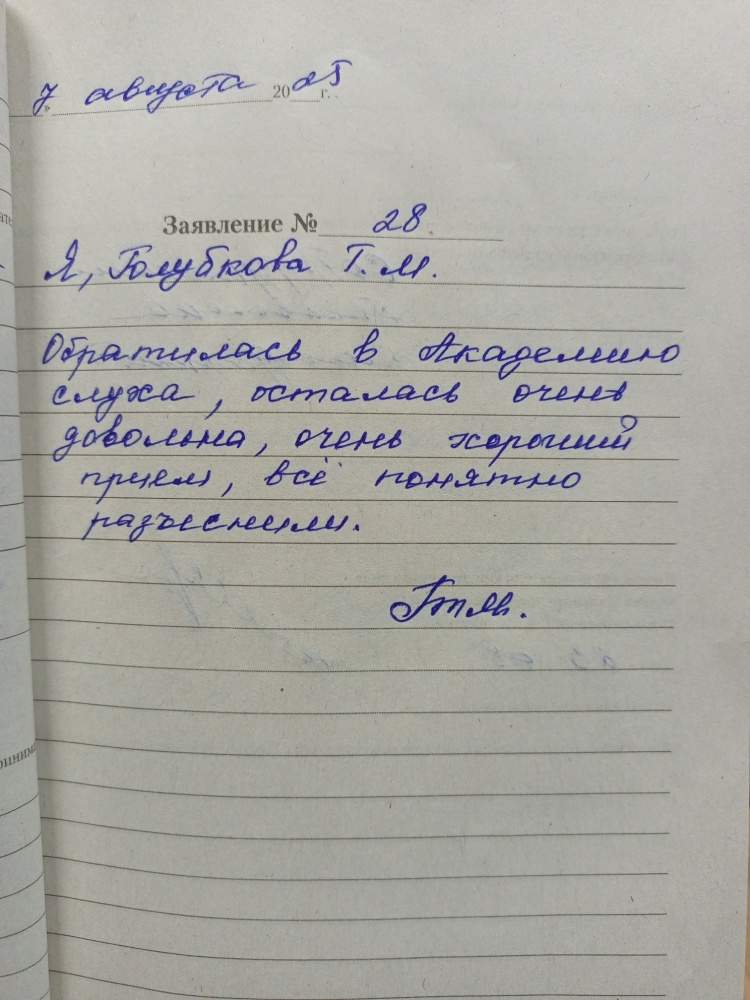 7 августа 2025 г.
Заявление № 28.
Я, Голубкова Т.М.
Обратилась в Академию
слуха, осталась очень
довольна, очень хороший
прием, всё понятно
разъяснили.